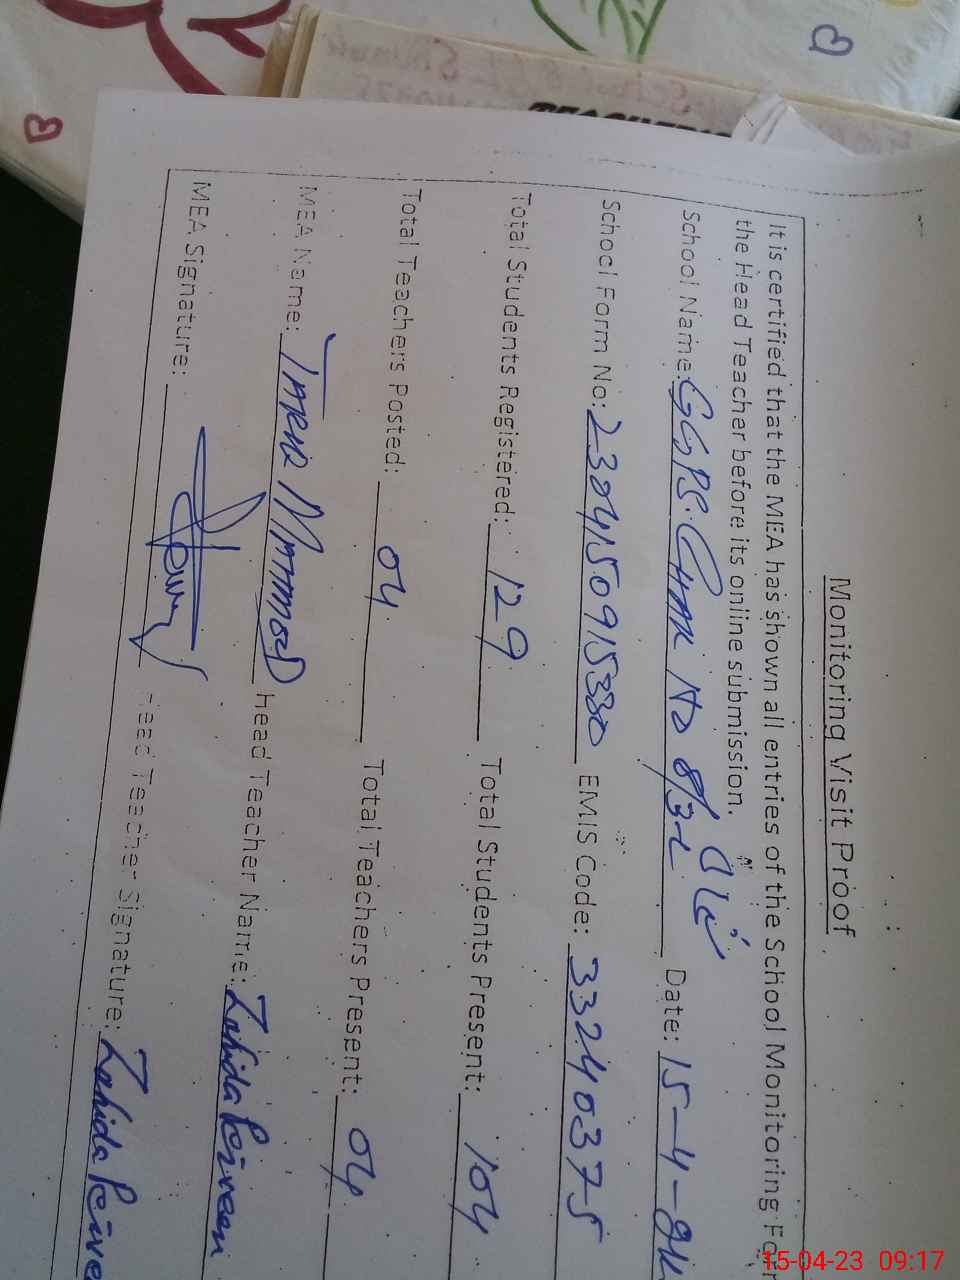 Monitoring Visit Proof
It is certified that the MEA has shown all entries of the School Monitoring For
the Head Teacher before its online submission.
School Name: GGPS. CHAK NO 8/3-L Date: 15-4-
School Form No: 2304150915330 EMIS Code: 33240375
Total Students Registered: 129 Total Students Present: 104
Total Teachers Posted: 04 Total Teachers Present: 04
MEA Name: Head Teacher Name: Zahida Perveen
MEA Signature: Head Teacher Signature: Zahida Perve
15-04-23 09:17